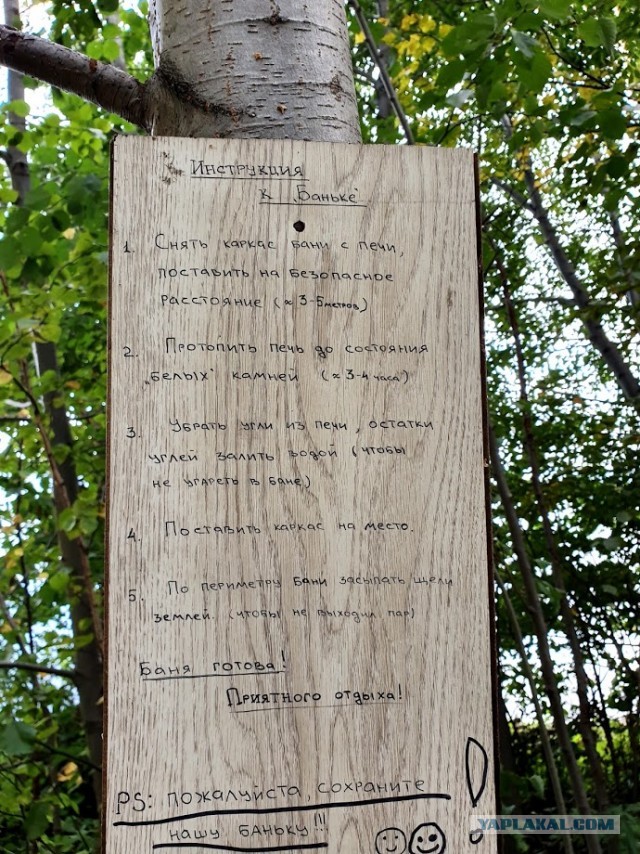 Инструкция
к "Баньке"
1. Снять каркас бани с печи,
поставить на безопасное
расстояние (≈ 3-5 метров)
2. Протопить печь до состояния
"белых" камней (≈ 3-4 часа)
3. Убрать угли из печи, остатки
углей залить водой (чтобы
не угареть в бане)
4. Поставить каркас на место.
5. По периметру бани засыпать щели
землей. (чтобы не выходил пар)
Баня готова!
Приятного отдыха!
PS: пожалуйста, сохраните
нашу баньку!!!
YAPLAKAL.COM